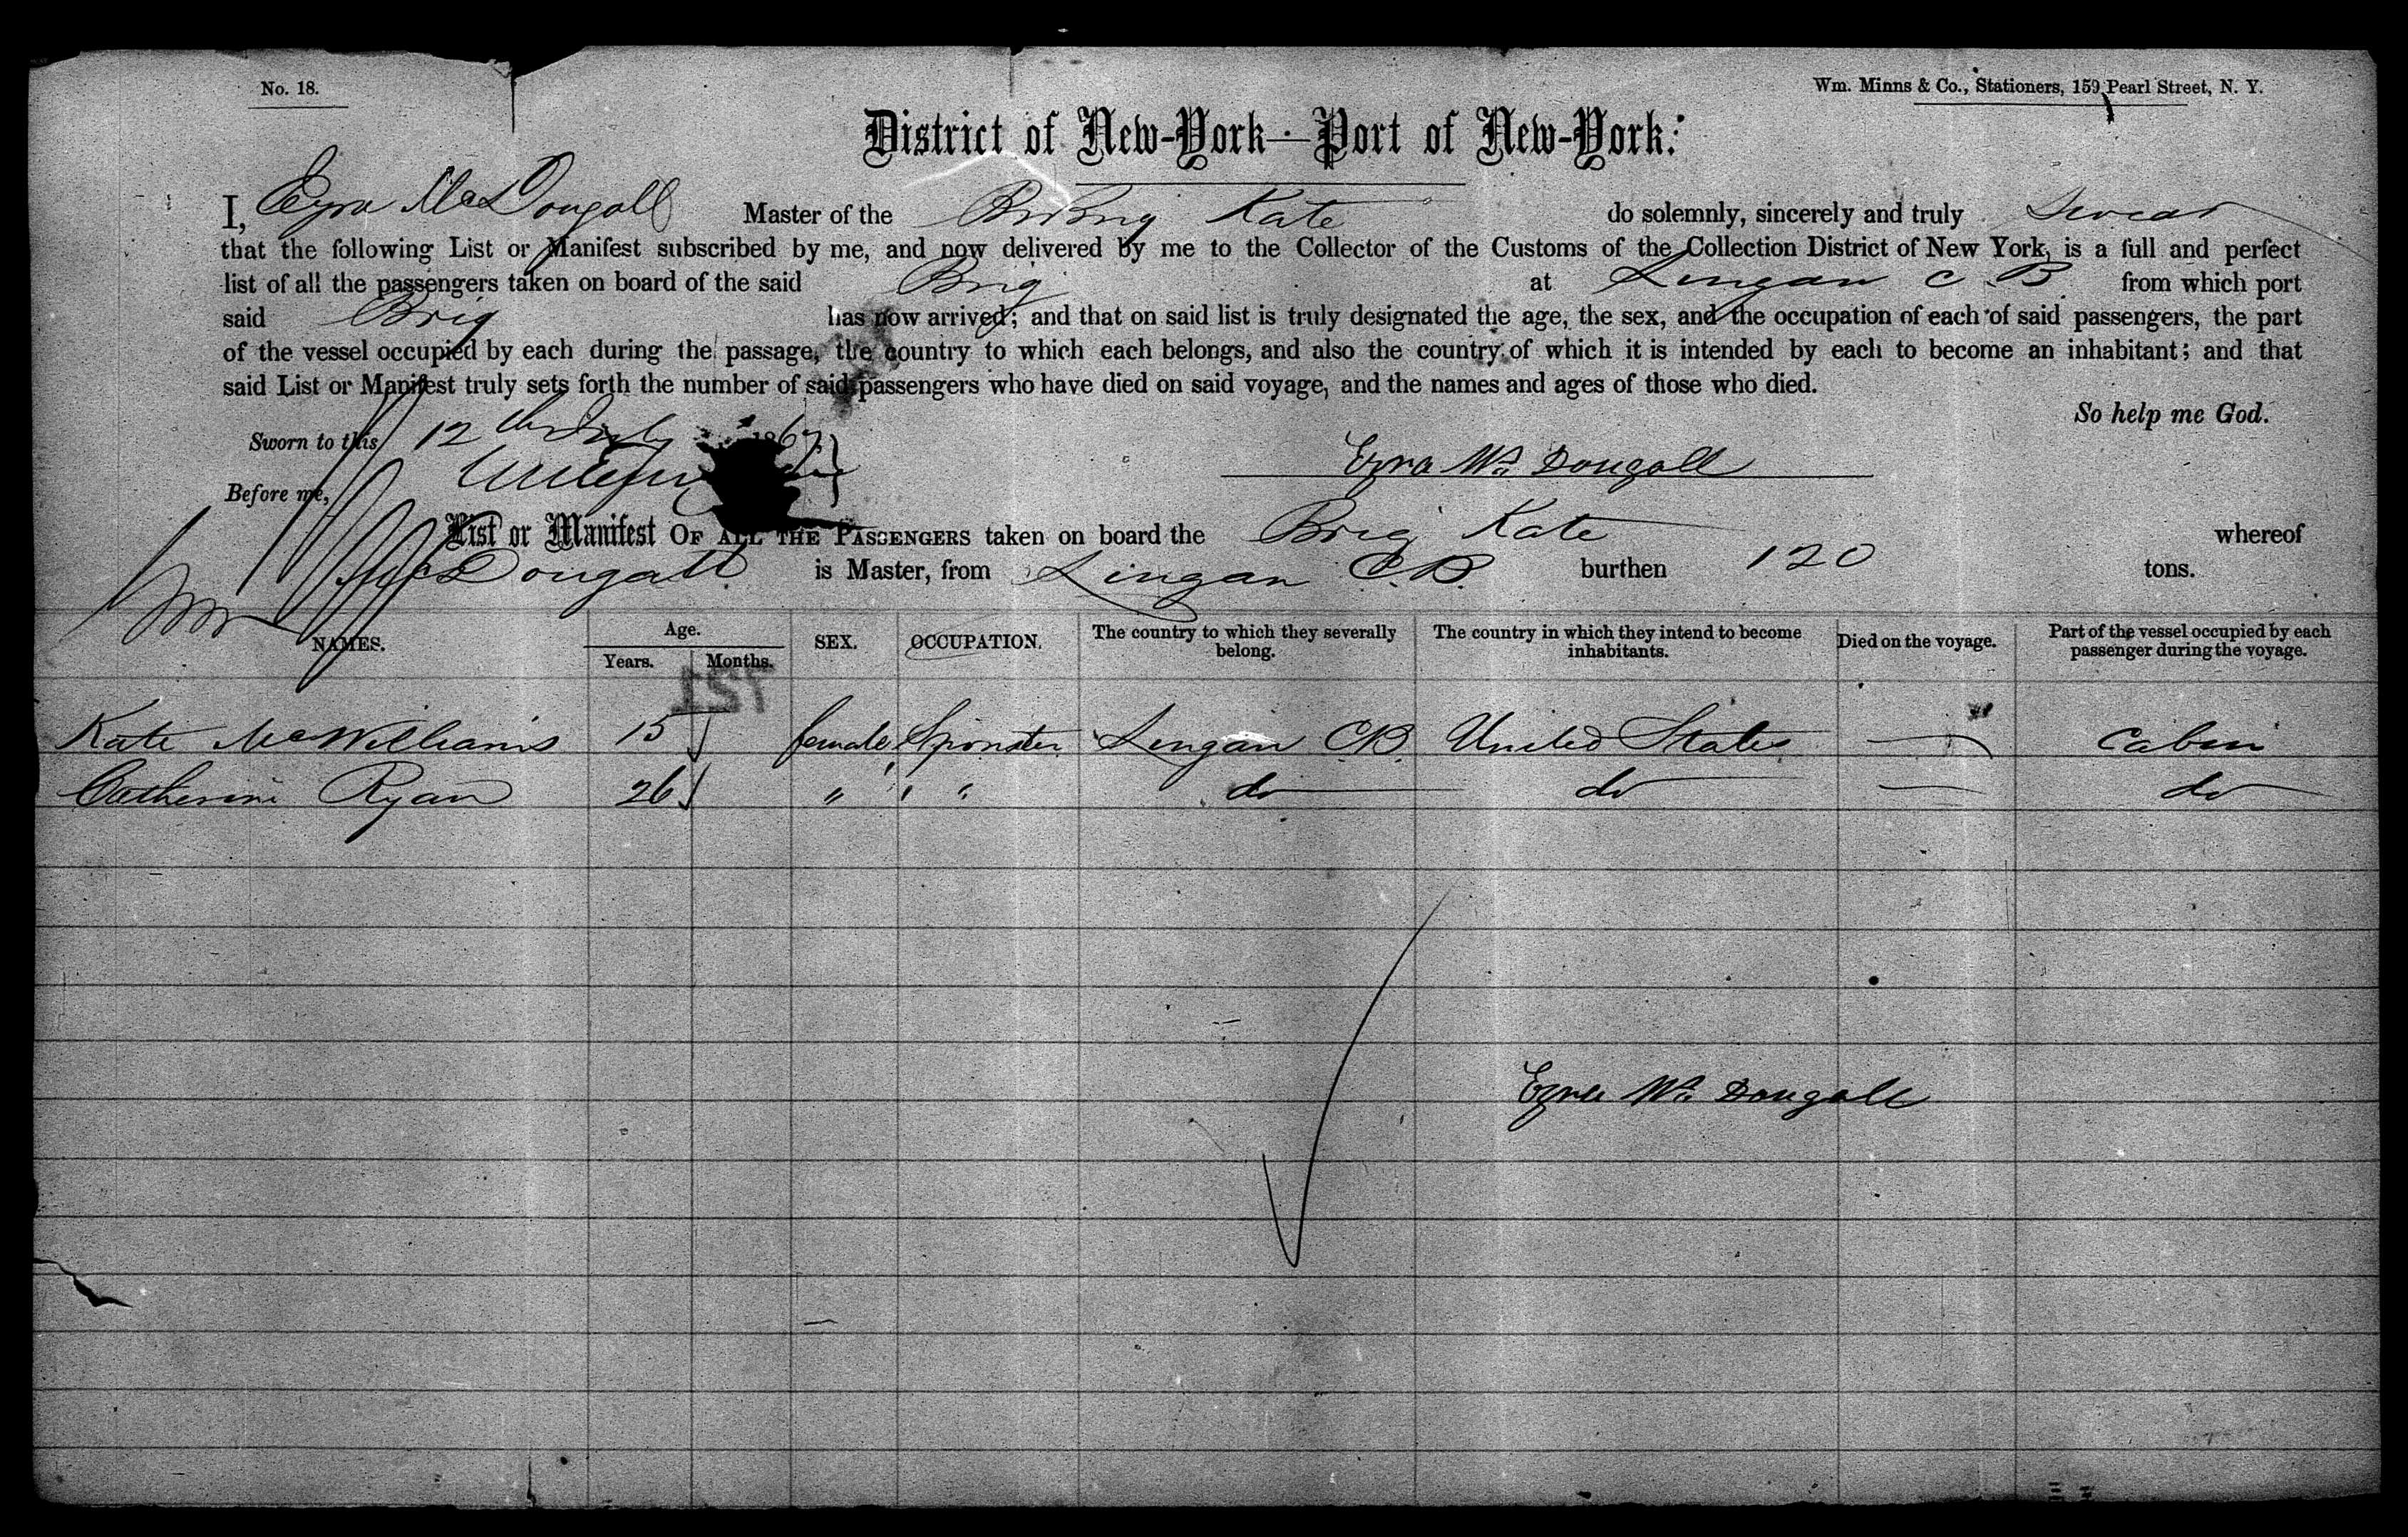 No. 18.
Wm. Minns & Co., Stationers, 159 Pearl Street, N. Y.
District of New-York—Port of New-York:
I, Ezra McDougall Master of the Br Brig Kate do solemnly, sincerely and truly Swear
that the following List or Manifest subscribed by me, and now delivered by me to the Collector of the Customs of the Collection District of New York, is a full and perfect
list of all the passengers taken on board of the said Brig at Lingan C.B. from which port
said Brig has now arrived; and that on said list is truly designated the age, the sex, and the occupation of each of said passengers, the part
of the vessel occupied by each during the passage, the country to which each belongs, and also the country of which it is intended by each to become an inhabitant; and that
said List or Manifest truly sets forth the number of said passengers who have died on said voyage, and the names and ages of those who died.
So help me God.
Sworn to this 12th July 186
Before me,
Ezra Mc Dougall
List or Manifest OF ALL THE PASSENGERS taken on board the Brig Kate whereof
McDougall is Master, from Lingan C.B. burthen 120 tons.
NAMES. Age. Years. Months. SEX. OCCUPATION. The country to which they severally belong. The country in which they intend to become inhabitants. Died on the voyage. Part of the vessel occupied by each passenger during the voyage.
721
Kate McWilliams 15 female Spinster Lingan CB. United States — Cabin
Catherine Ryan 26 " " " do do — do
Ezra Mc Dougall